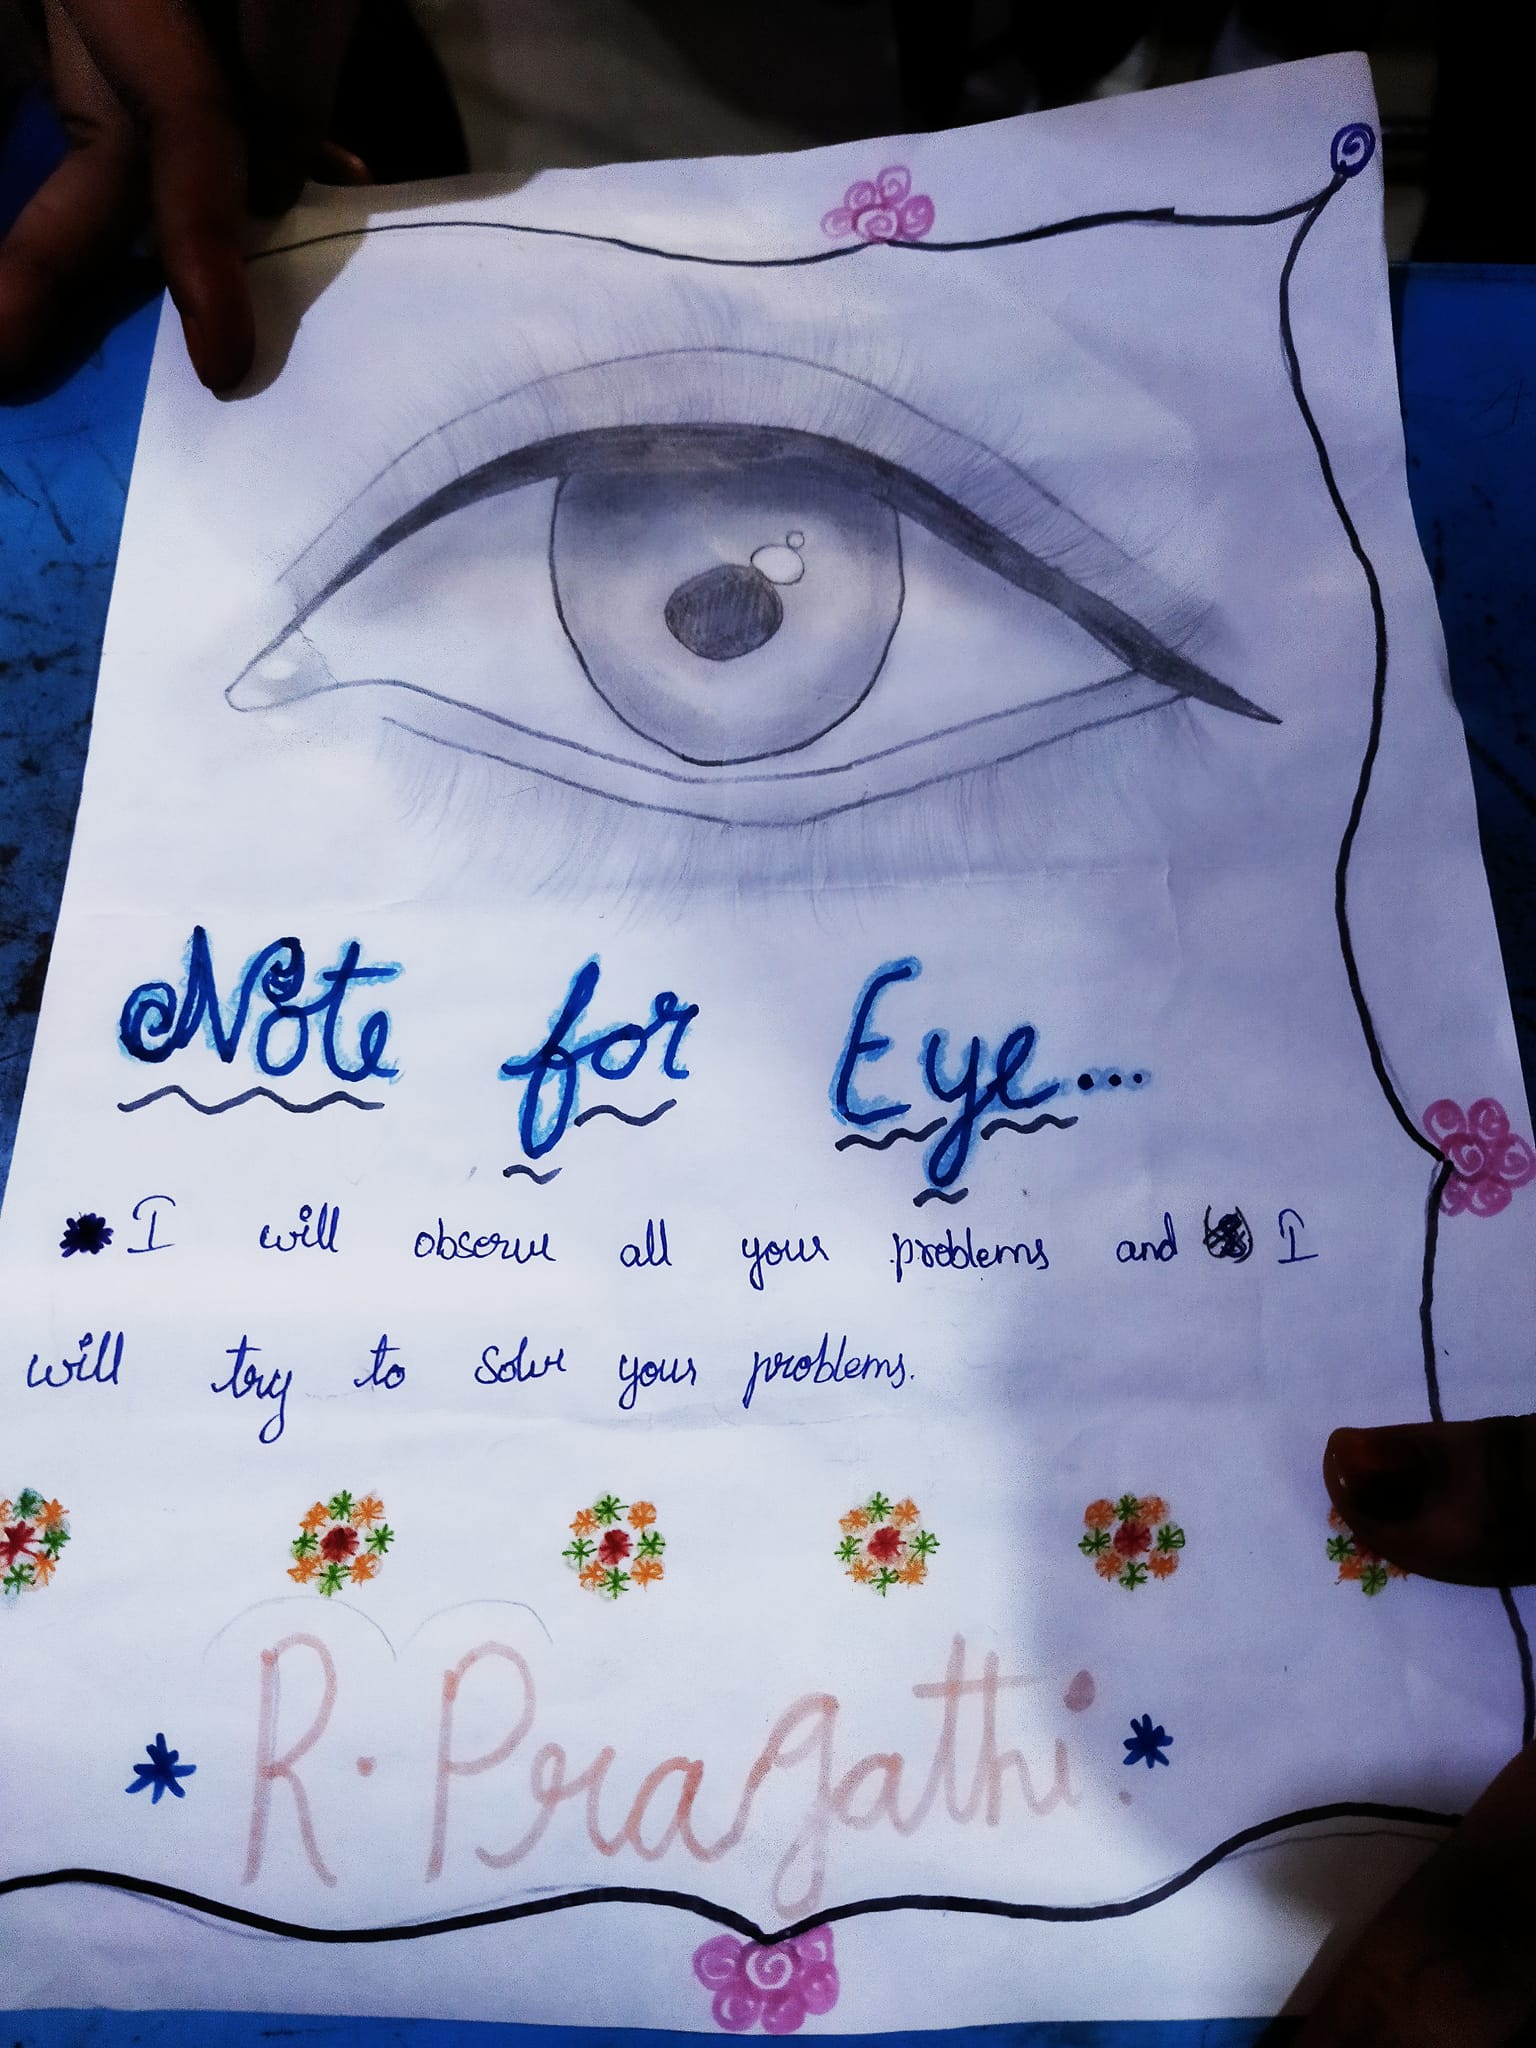 Note for Eye...
I will observe all your problems and I
will try to solve your problems.
R. Pragathi.